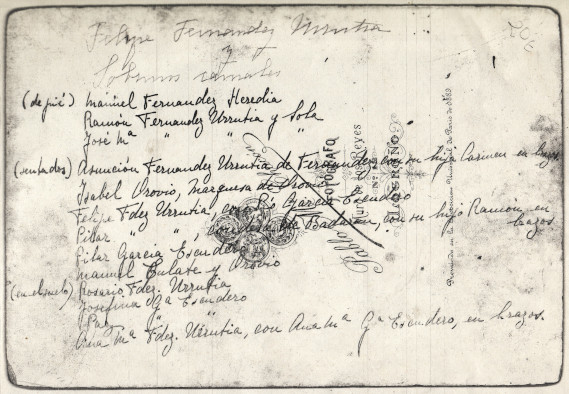 Felipe Fernandez Urrutia
y
Sobrinos carnales
(de pié) Manuel Fernandez Heredia
Ramón Fernandez Urrutia y Sola
José Mª " " "
(sentados) Asunción Fernandez Urrutia de Fernandez con su hija Carmen en brazos
Isabel Orovio, Marquesa de Orovio
Felipe Fdez Urrutia, con Pío García Escudero
Pilar " " condesa de Badarán, con su hijo Ramón en brazos
Pilar Garcia Escudero
Manuel Eulate y Orovio
(en el suelo) Rosario Fdez. Urrutia
Josefina Gª Escudero
Paz " "
Ana Mª Fdez. Urrutia, con Ana Mª Gª Escudero, en brazos.
Pablo
FOTÓGRAFO
Reyes
LOGROÑO
Premiado en la Exposición Universal de Paris de 1889